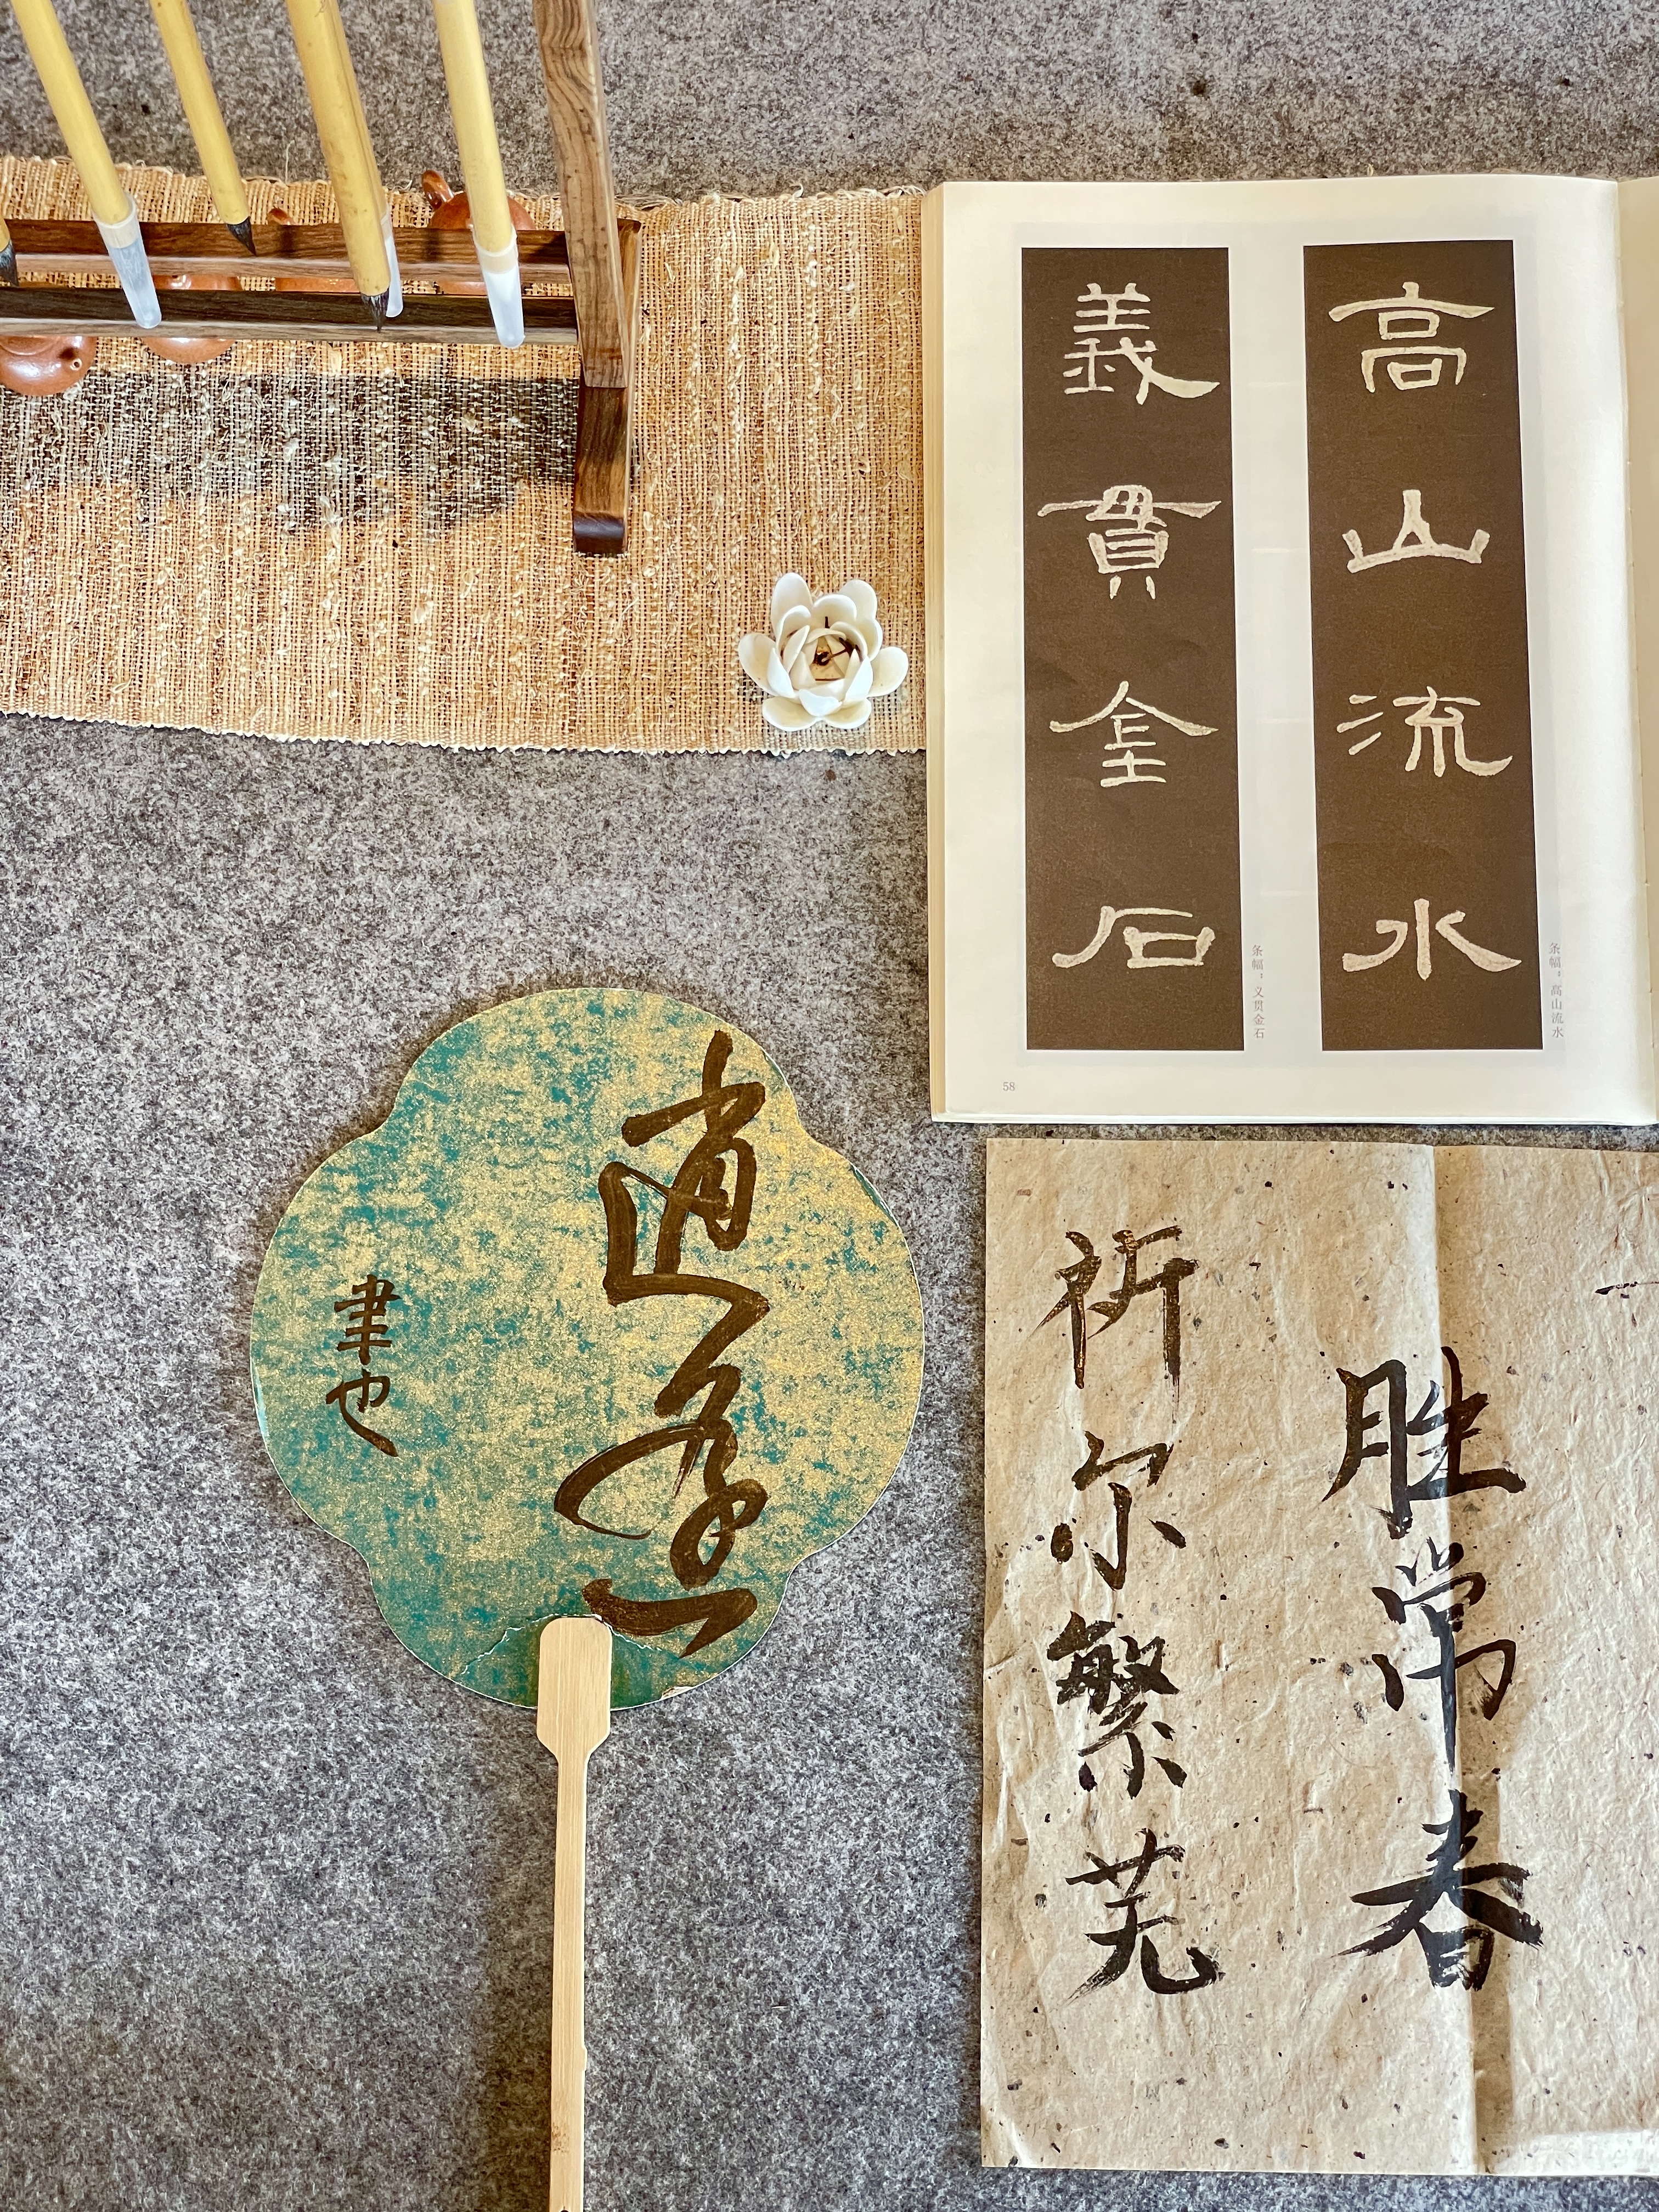 高山流水
条幅：高山流水
義貫金石
条幅：义贯金石
58
逍遥
聿也
胜常春
祈尔繁芜